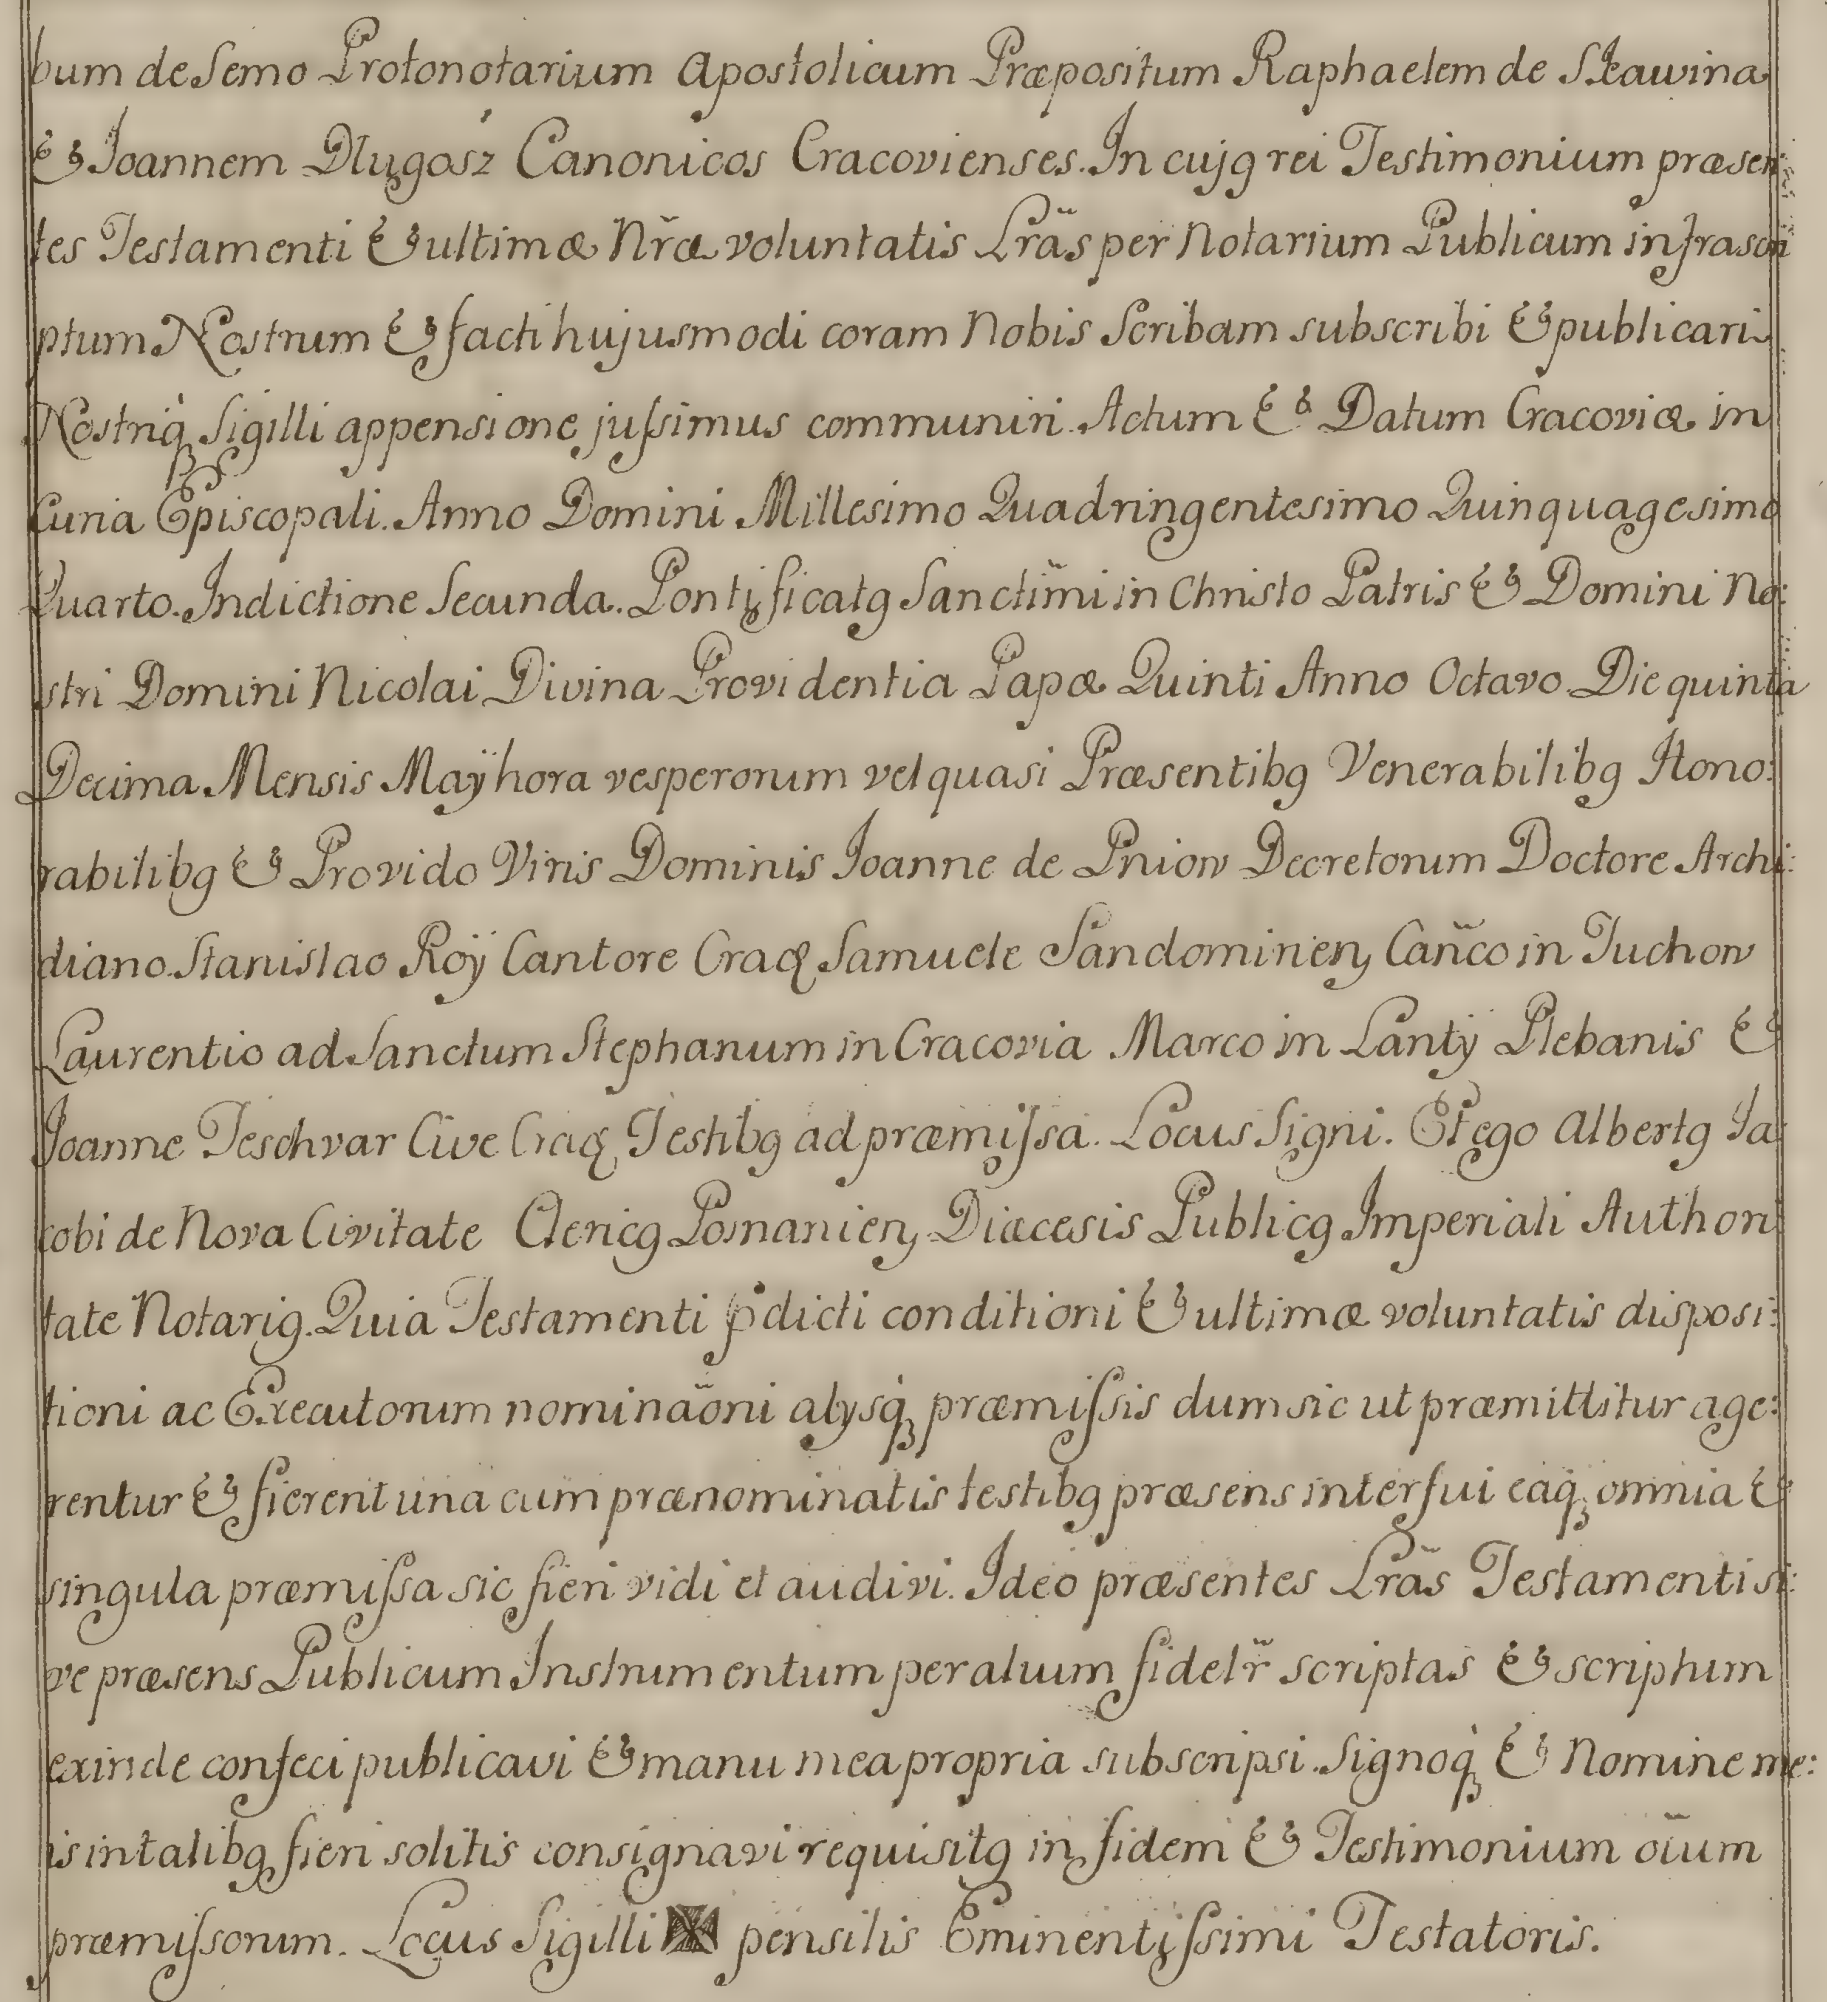 bum de Semo Protonotarium Apostolicum Præpositum Raphaelem de Skawina
& Joannem Dlugosz Canonicos Cracovienses. In cujꝯ rei Testimonium præsen:
tes Testamenti & ultimæ Nr̃æ voluntatis Lrãs per Notarium Publicum infrascri
ptum Nostrum & facti hujusmodi coram Nobis Scribam subscribi & publicari
Nostriq̃ Sigilli appensione jussimus communiri. Actum & Datum Cracoviæ in
Curia Episcopali. Anno Domini Millesimo Quadringentesimo Quinquagesimo
Quarto. Indictione Secunda. Pontificatꝯ Sanctim̃i in Christo Patris & Domini No:
stri Domini Nicolai Divina Providentia Papæ Quinti Anno Octavo Die quinta
Decima Mensis Maÿ hora vesperorum vel quasi Præsentibꝯ Venerabilibꝯ Hono:
rabilibꝯ & Provido Viris Dominis Joanne de Pniow Decretorum Doctore Archi:
diano. Stanislao Roÿ Cantore Craꝯ Samuele Sandominien̨ Cañco in Tuchow
Laurentio ad Sanctum Stephanum in Cracovia Marco in Lantÿ Plebanis &
Joanne Teschvar Cive Craꝯ Testibꝯ ad præmissa. Locus Signi. Et ego Albertꝯ Ja:
cobi de Nova Civitate Clericꝯ Posnanien̨ Diæcesis Publicꝯ Imperiali Authori
tate Notariꝯ. Quia Testamenti p̃dicti conditioni & ultimæ voluntatis disposi:
tioni ac Executorum nominãoni alysq̃ præmissis dum sic ut præmittitur age:
rentur & fierent una cum prænominatis testibꝯ præsens interfui eaq̃ omnia &
singula præmissa sic fieri vidi et audivi. Ideo præsentes Lrãs Testamenti si:
ve præsens Publicum Instrumentum per alium fidelr̃ scriptas & scriptum
exinde confeci publicavi & manu mea propria subscripsi. Signoq̃ & Nomine me:
is in talibꝯ fieri solitis consignavi requisitꝯ in fidem & Testimonium oĩum
præmissorum. Locus Sigilli pensilis Eminentissimi Testatoris.